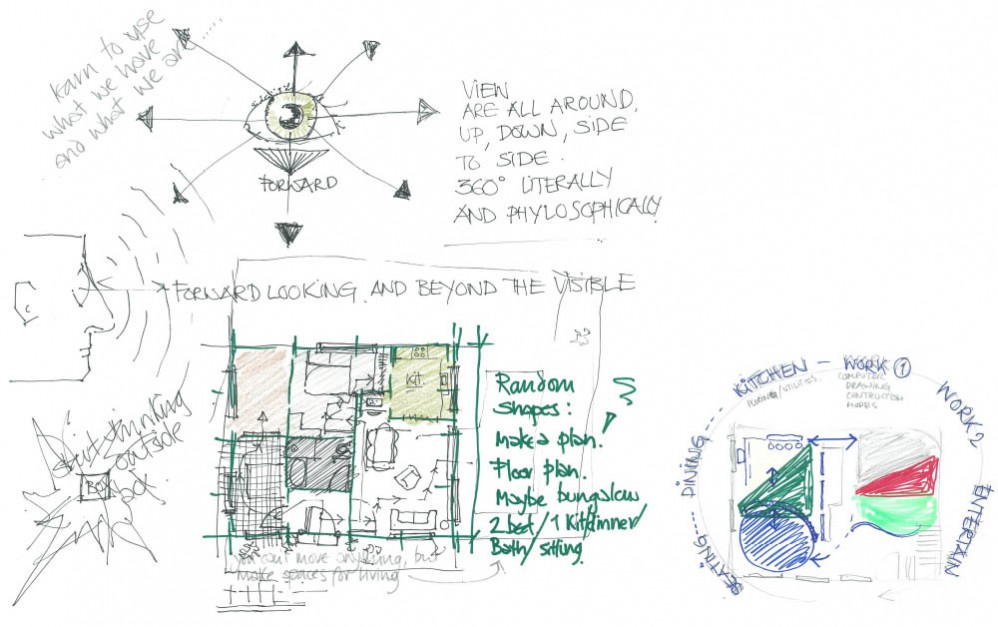 learn to use
what we have
and what we are ....
VIEW
ARE ALL AROUND,
UP, DOWN, SIDE
TO SIDE.
360° LITERALLY
AND PHYLOSOPHICALLY
FORWARD
FORWARD LOOKING AND BEYOND THE VISIBLE
thinking
outside
BOX
Kit.
Random
shapes:
Make a plan.
Floor plan.
Maybe bungalow
2 bed / 1 Kit/dinner/
Bath / sitting.
you can't move anything, but
make spaces for living
KITCHEN - WORK 1
COMPUTER
DRAWING
WORK 2
ENTERTAIN
SEATING --- DINING ---
MODELS